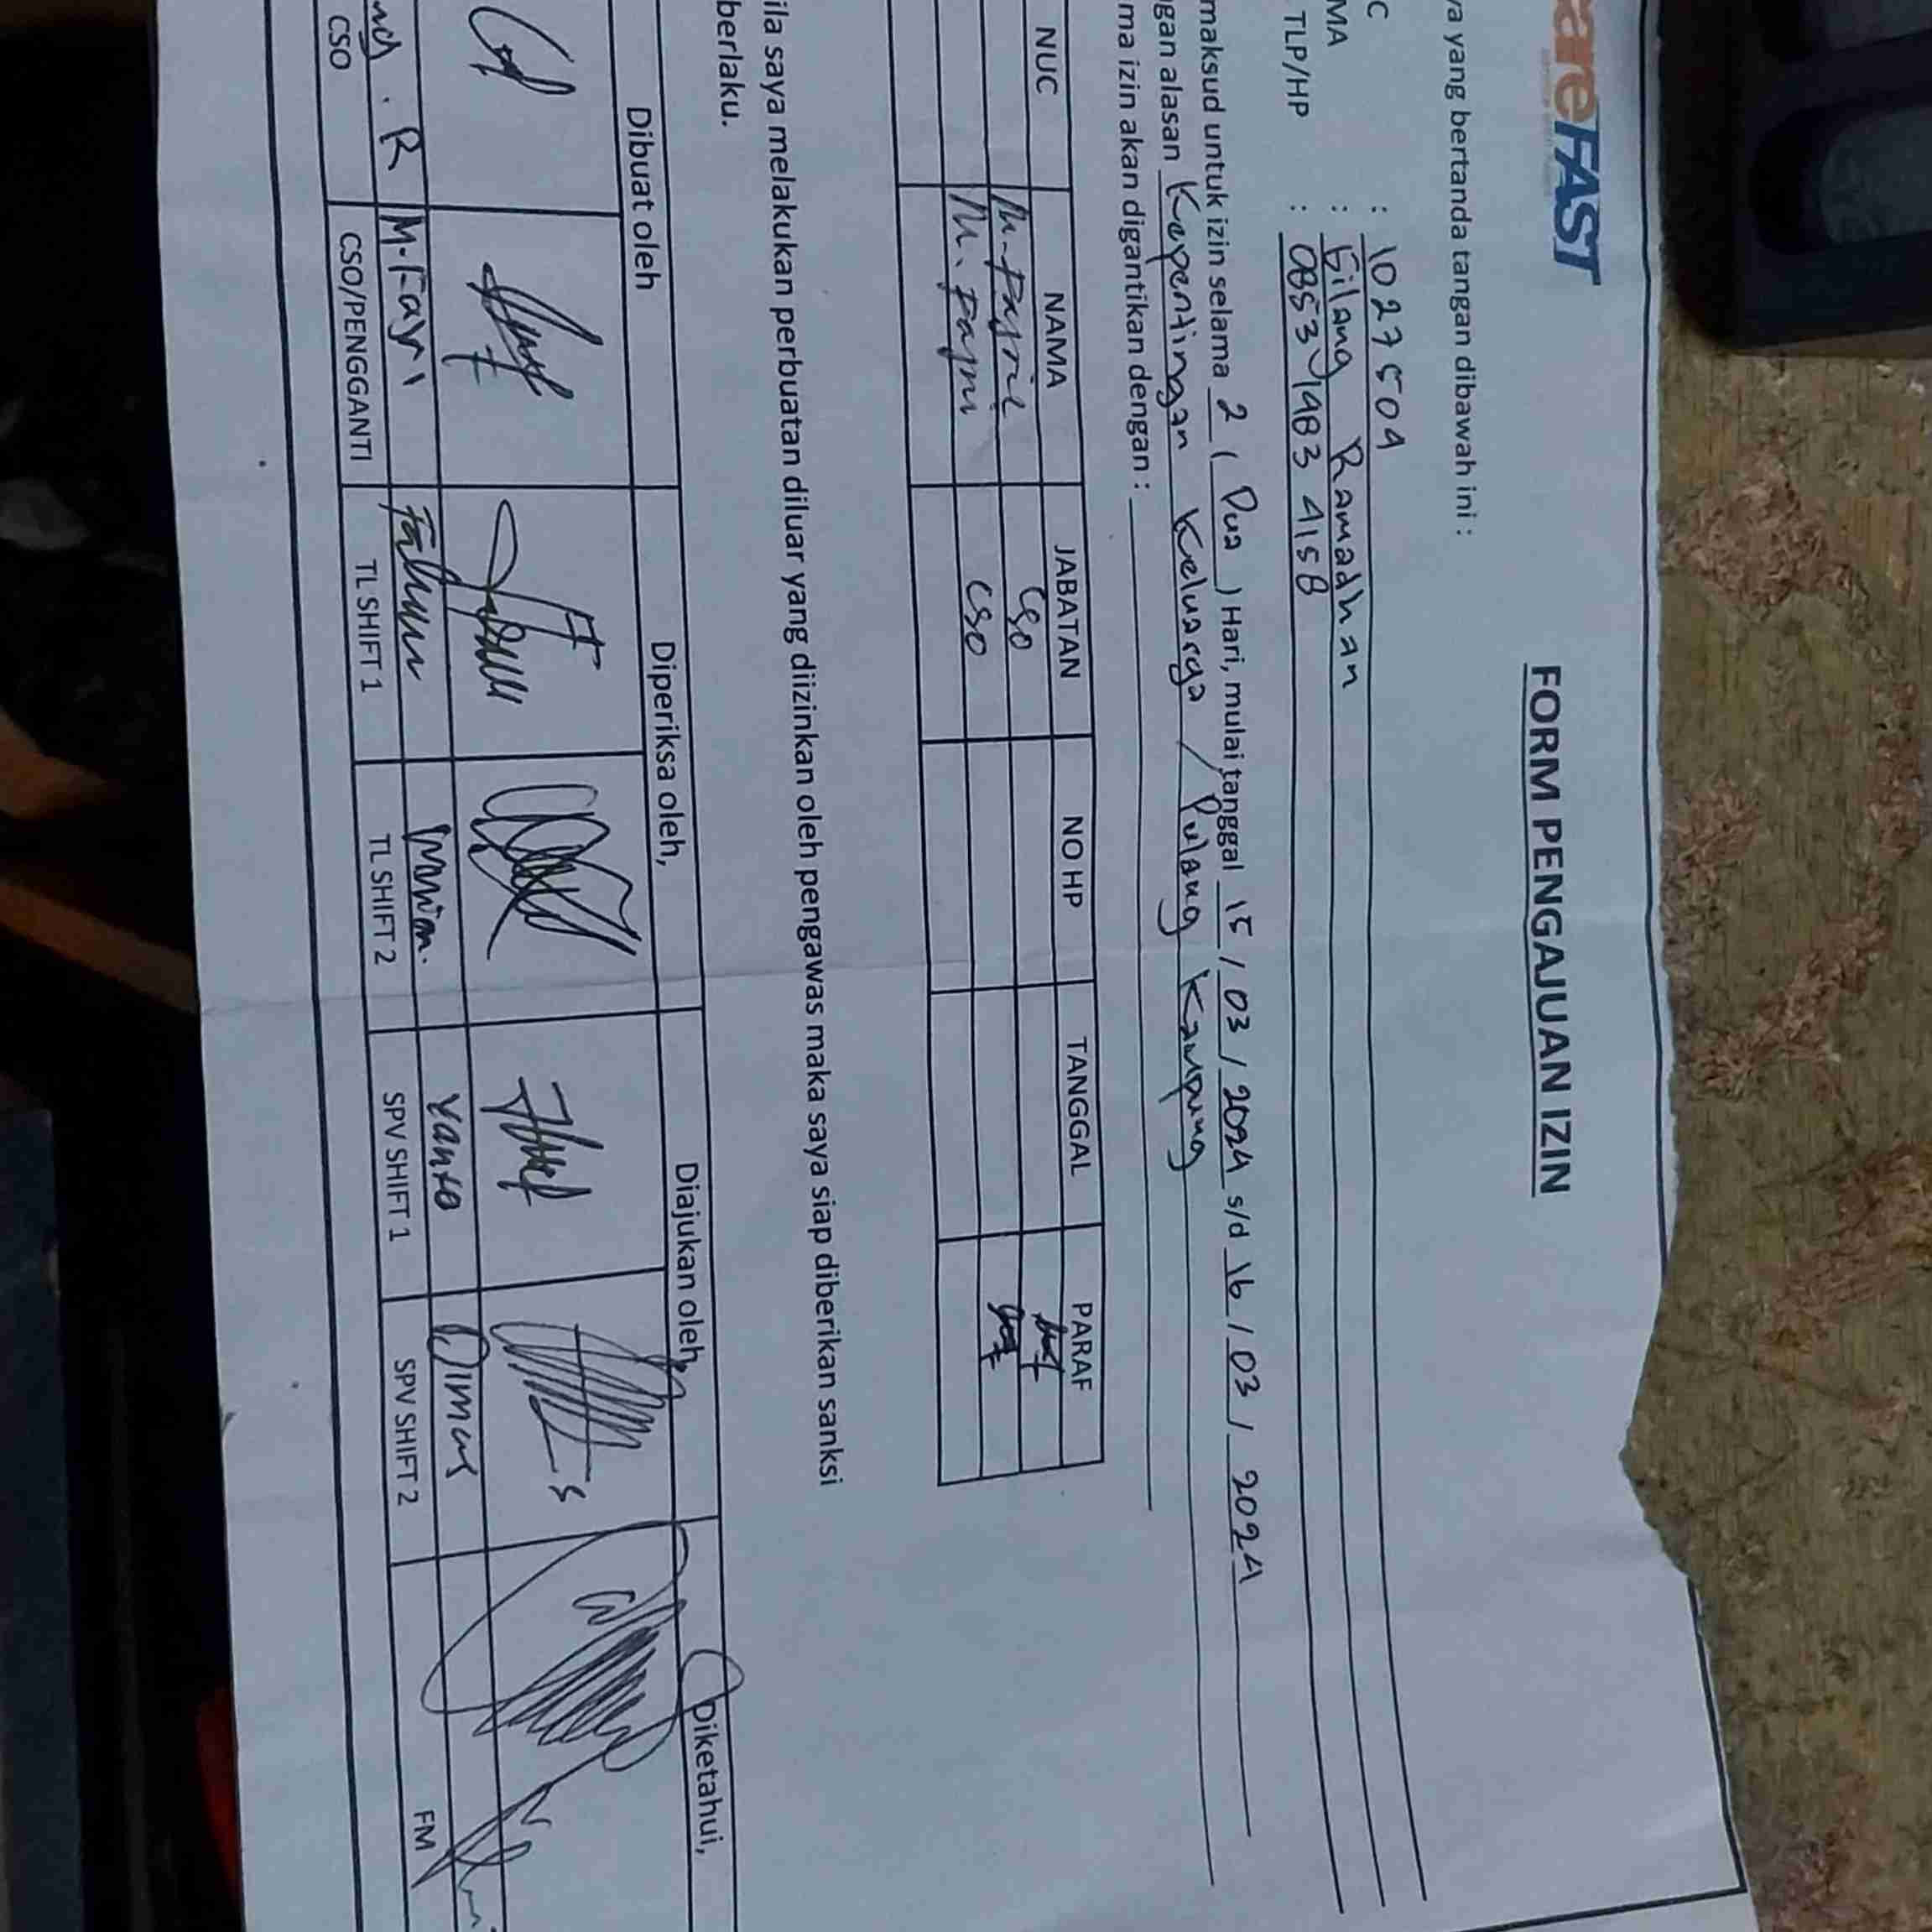 areFAST
FORM PENGAJUAN IZIN
ya yang bertanda tangan dibawah ini :
C : 1027504
MA : Gilang Ramadhan
TLP/HP : 0853 1983 4158
maksud untuk izin selama 2 ( Dua ) Hari, mulai tanggal 15 / 03 / 2024 s/d 16 / 03 / 2024
gan alasan Kepentingan Keluarga / Pulang Kampung
ma izin akan digantikan dengan :
NUC NAMA JABATAN NO HP TANGGAL PARAF
CSO
M. Fajri CSO
ila saya melakukan perbuatan diluar yang diizinkan oleh pengawas maka saya siap diberikan sanksi
berlaku.
Dibuat oleh Diperiksa oleh, Diajukan oleh, Diketahui,
R M. Fajri Yanto Dimas
CSO CSO/PENGGANTI TL SHIFT 1 TL SHIFT 2 SPV SHIFT 1 SPV SHIFT 2 FM